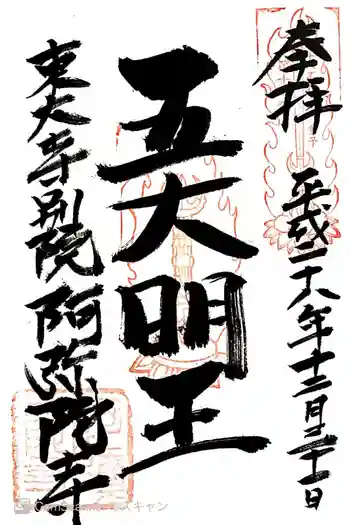 奉拝 平成二十八年十二月三十一日
五大明王
東大寺別院阿弥陀寺